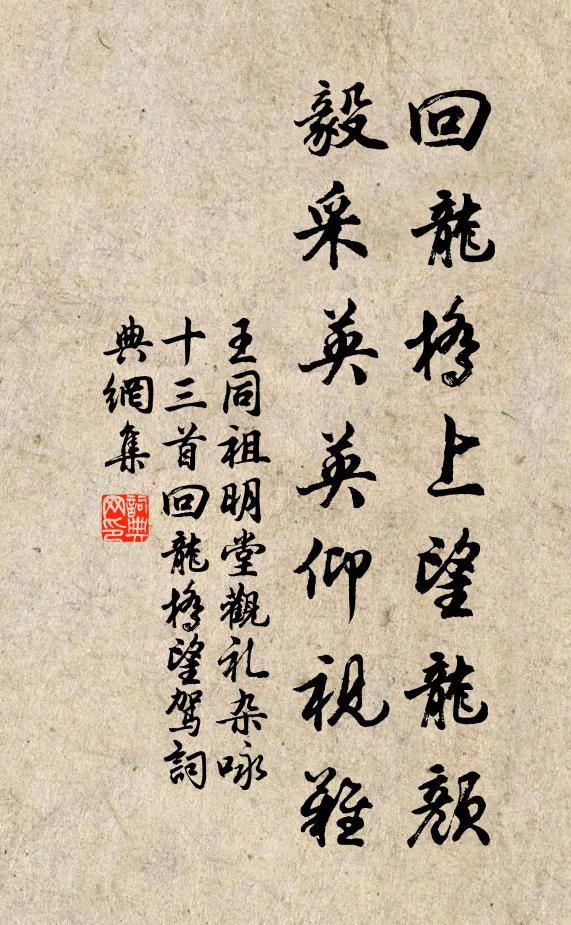 回龍橋上望龍顔
毅采英英仰視難
王同祖明堂觀礼杂咏
十三首回龍橋望驾詞
典網集
詞典
网印